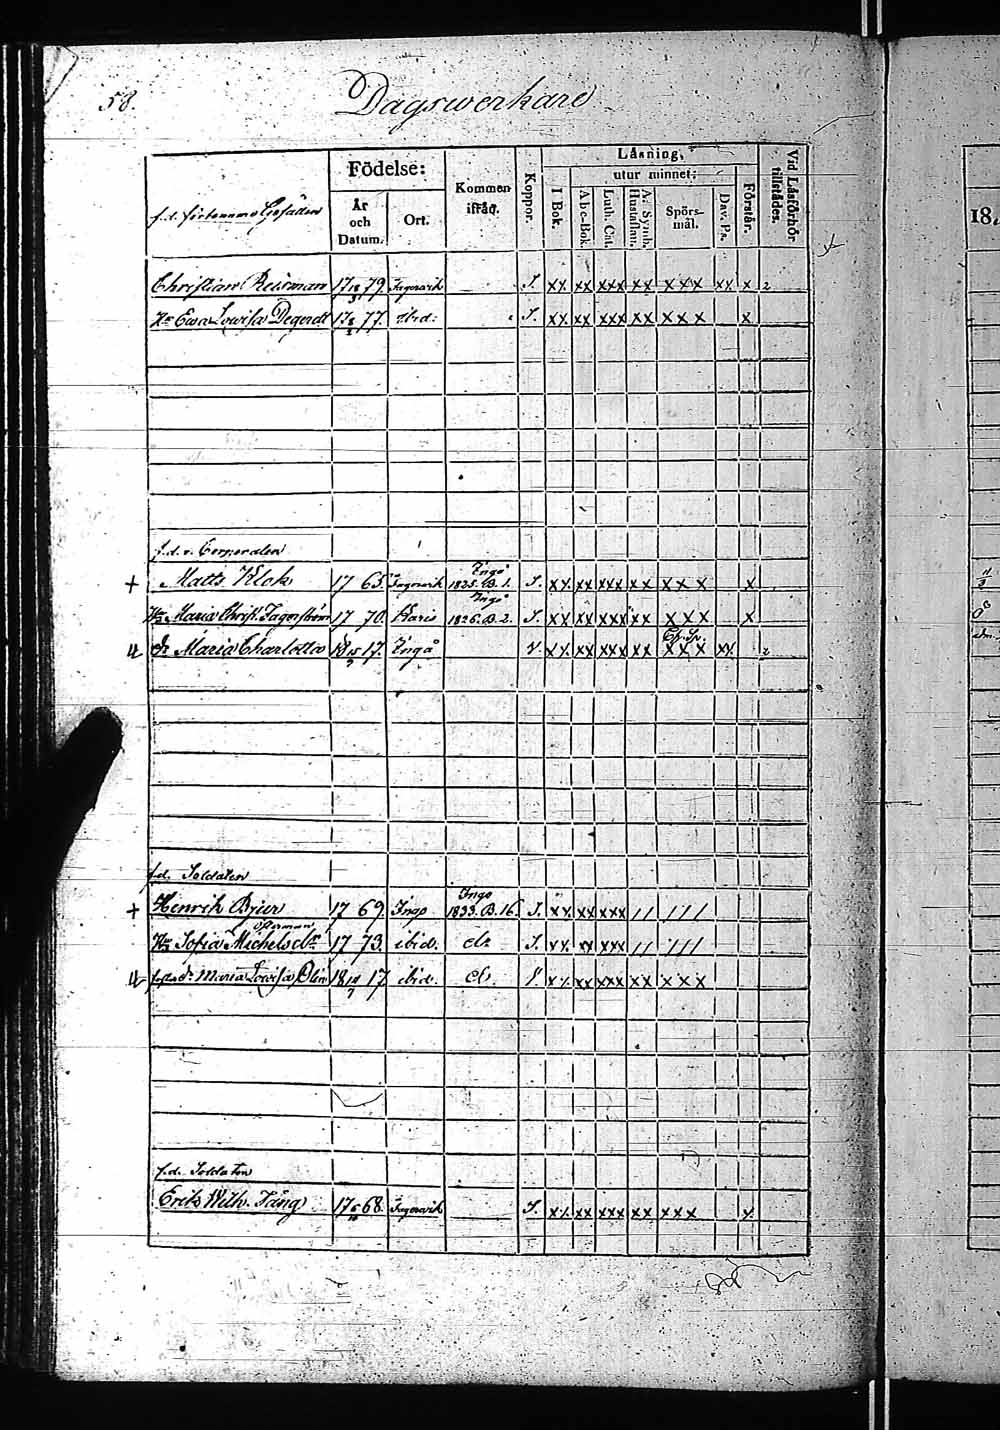 58.
Dagswerkare
Födelse:
Kommen ifråg.
Koppor.
Läsning,
utur minnet:
Vid Läsförhör tillstädes.
År och Datum.
Ort.
I Bok.
Abc-Bok
Luth. Cat.
A. Symb. Hustaflan.
Spörsmål.
Dav. Ps.
Förstår.
18.
f.d.
Christian 17 18/3 79. Fagervik S. xx xx xxx xx xxx xx x 2
Hu Ewa Lowisa Degerdt 17 8/2 77. ibid: S. xx xx xxx xx xxx x
f.d. v. Corporalen
+ Matts Klok 17 65. Fagervik Ingå 1825. B. 1. S. xx xx xxx xx xxx x
Hu Maria Christ. Fagerström 17 70. Karis Ingå 1826. B. 2. S. xx xx xxx xx xxx x
dr Maria Charlotta 18 15/2 17. Ingå V. xx xx xxx xx xxx xx 2
f.d. Soldaten
+ Henrik 17 69. Ingo Ingo 1833. B. 16. S. xx xx xxx // ///
Österman
Hu Sofia Michelsdr 17 73. ibid. do S. xx xx xxx // ///
Maria Lowisa 18 17. ibid. do. V. xx xx xxx xx xxx
f.d. Soldaten
Eric Wilh. Fång 17 68. Fagervik S. xx xx xxx xx xxx x